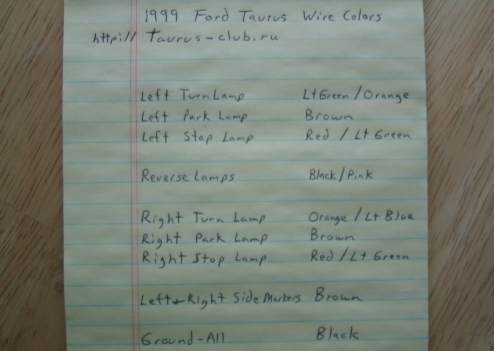 1999 Ford Taurus Wire Colors
http:// Taurus-club.ru
Left Turn Lamp Lt Green / Orange
Left Park Lamp Brown
Left Stop Lamp Red / Lt Green
Reverse Lamps Black/Pink
Right Turn Lamp Orange / Lt Blue
Right Park Lamp Brown
Right Stop Lamp Red / Lt Green
Left & Right Side Markers Brown
Ground-All Black